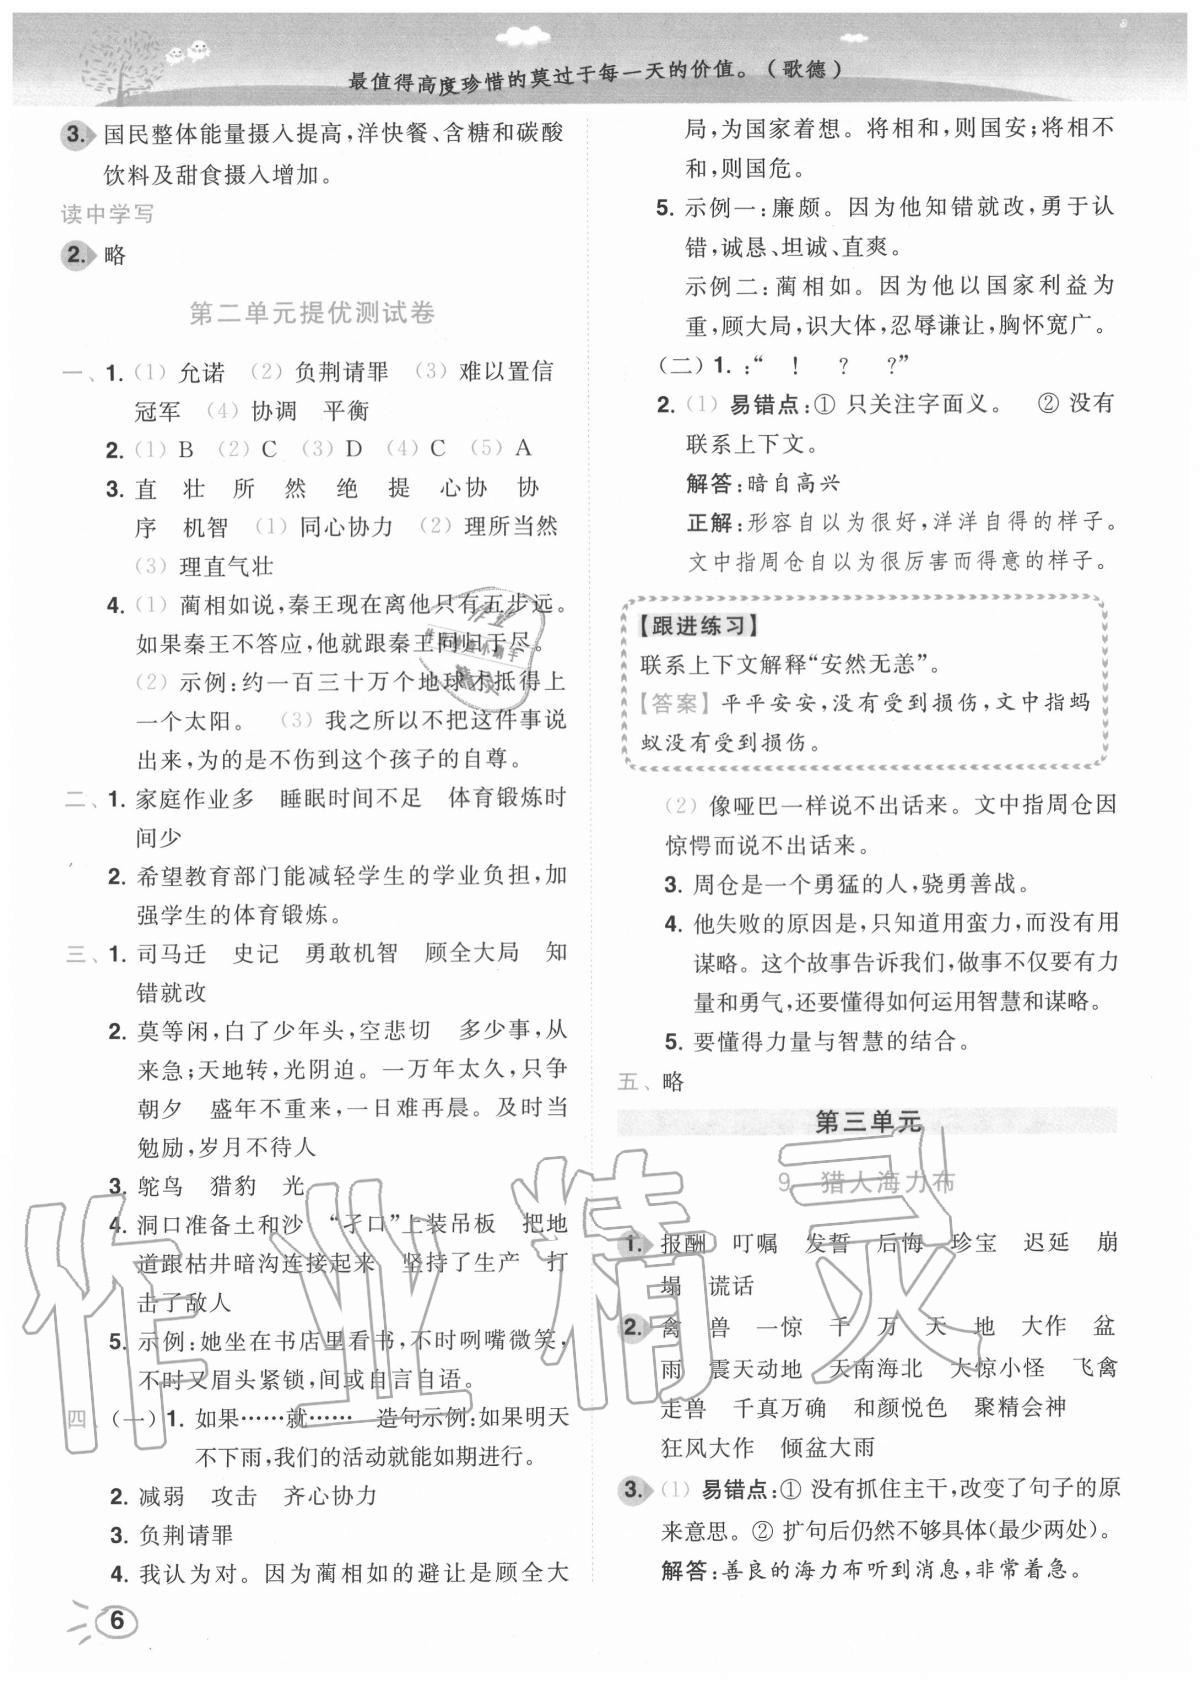 最值得高度珍惜的莫过于每一天的价值。（歌德）
3. 国民整体能量摄入提高,洋快餐、含糖和碳酸
饮料及甜食摄入增加。
读中学写
2. 略
第二单元提优测试卷
一、1. (1) 允诺 (2) 负荆请罪 (3) 难以置信
冠军 (4) 协调 平衡
2. (1) B (2) C (3) D (4) C (5) A
3. 直 壮 所 然 绝 提 心协 协
序 机智 (1) 同心协力 (2) 理所当然
(3) 理直气壮
4. (1) 蔺相如说,秦王现在离他只有五步远。
如果秦王不答应,他就跟秦王同归于尽。
(2) 示例:约一百三十万个地球才抵得上
一个太阳。 (3) 我之所以不把这件事说
出来,为的是不伤到这个孩子的自尊。
二、1. 家庭作业多 睡眠时间不足 体育锻炼时
间少
2. 希望教育部门能减轻学生的学业负担,加
强学生的体育锻炼。
三、1. 司马迁 史记 勇敢机智 顾全大局 知
错就改
2. 莫等闲,白了少年头,空悲切 多少事,从
来急;天地转,光阴迫。一万年太久,只争
朝夕 盛年不重来,一日难再晨。及时当
勉励,岁月不待人
3. 鸵鸟 猎豹 光
4. 洞口准备土和沙 “孑口”上装吊板 把地
道跟枯井暗沟连接起来 坚持了生产 打
击了敌人
5. 示例:她坐在书店里看书,不时咧嘴微笑,
不时又眉头紧锁,间或自言自语。
四、(一) 1. 如果……就…… 造句示例:如果明天
不下雨,我们的活动就能如期进行。
2. 减弱 攻击 齐心协力
3. 负荆请罪
4. 我认为对。因为蔺相如的避让是顾全大
6
局,为国家着想。将相和,则国安;将相不
和,则国危。
5. 示例一:廉颇。因为他知错就改,勇于认
错,诚恳、坦诚、直爽。
示例二:蔺相如。因为他以国家利益为
重,顾大局,识大体,忍辱谦让,胸怀宽广。
(二) 1. :“ ! ? ?”
2. (1) 易错点:① 只关注字面义。 ② 没有
联系上下文。
解答:暗自高兴
正解:形容自以为很好,洋洋自得的样子。
文中指周仓自以为很厉害而得意的样子。
【跟进练习】
联系上下文解释“安然无恙”。
【答案】平平安安,没有受到损伤,文中指蚂
蚁没有受到损伤。
(2) 像哑巴一样说不出话来。文中指周仓因
惊愕而说不出话来。
3. 周仓是一个勇猛的人,骁勇善战。
4. 他失败的原因是,只知道用蛮力,而没有用
谋略。这个故事告诉我们,做事不仅要有力
量和勇气,还要懂得如何运用智慧和谋略。
5. 要懂得力量与智慧的结合。
五、略
第三单元
9 猎人海力布
1. 报酬 叮嘱 发誓 后悔 珍宝 迟延 崩
塌 谎话
2. 禽 兽 一惊 千 万 天 地 大作 盆
雨 震天动地 天南海北 大惊小怪 飞禽
走兽 千真万确 和颜悦色 聚精会神
狂风大作 倾盆大雨
3. (1) 易错点:① 没有抓住主干,改变了句子的原
来意思。② 扩句后仍然不够具体(最少两处)。
解答:善良的海力布听到消息,非常着急。
作业精灵